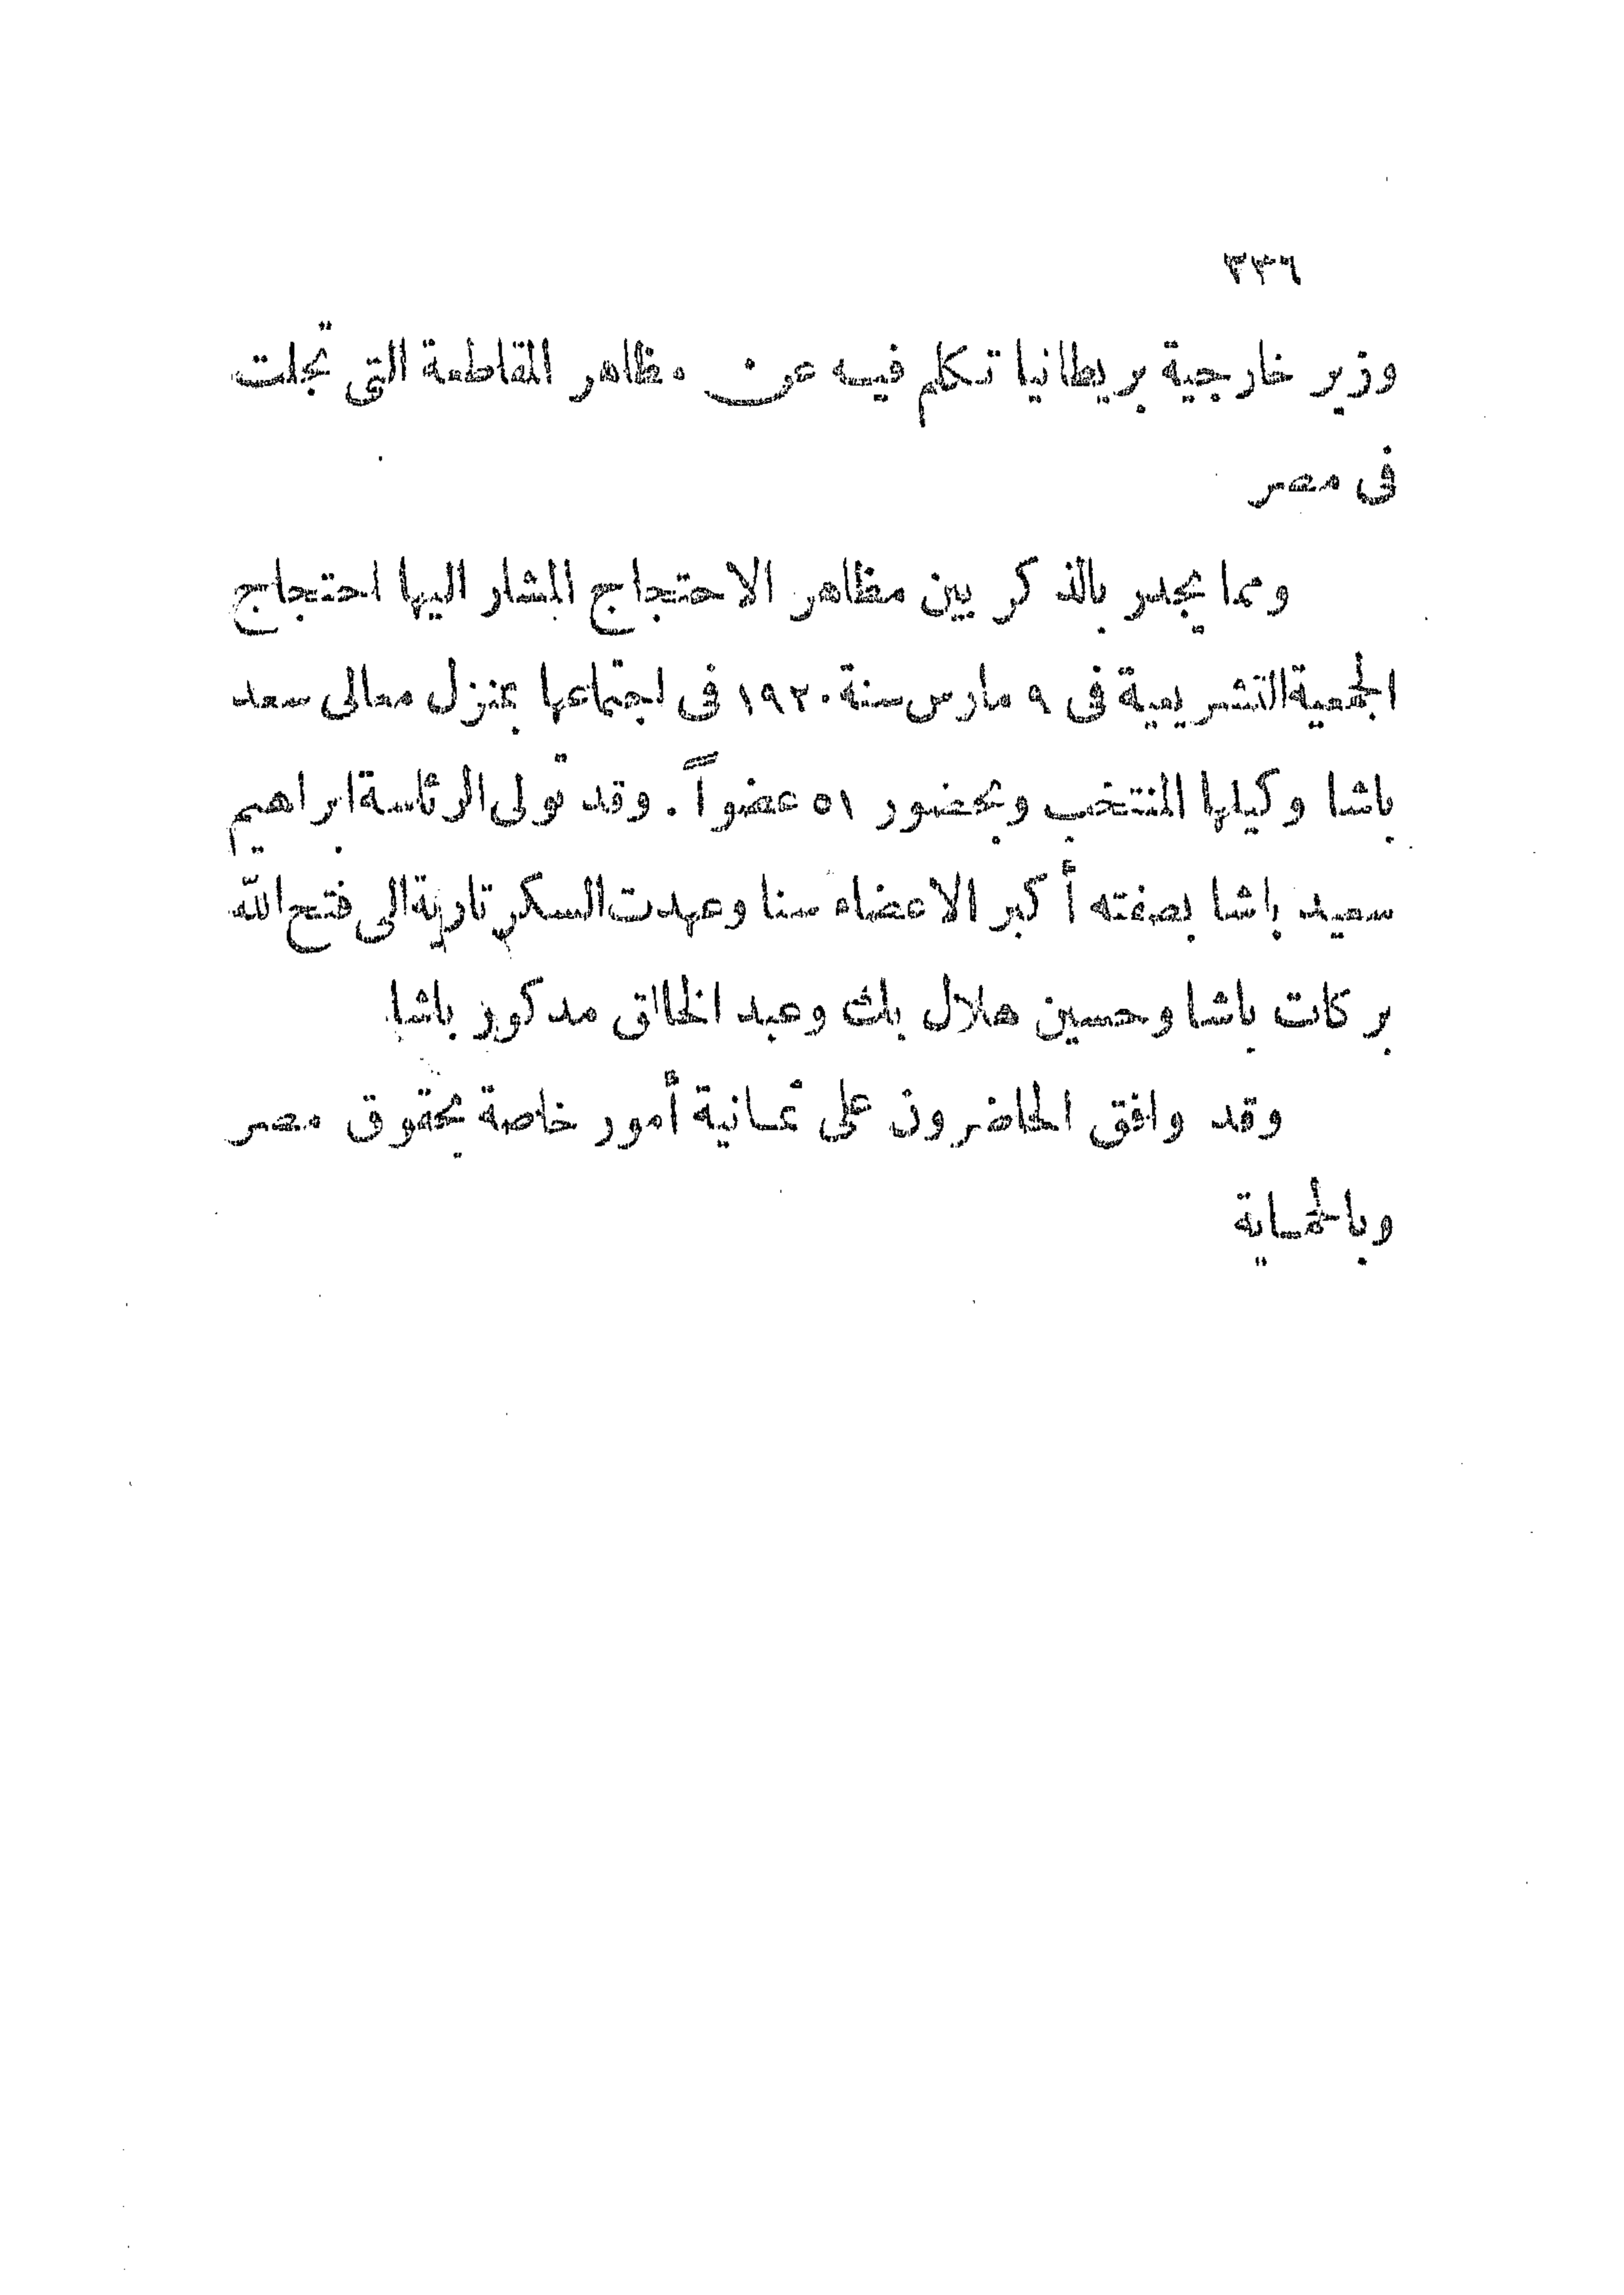 ٣٣٦
وزير خارجية بريطانيا تكلم فيه عن مظاهر المقاطعة التي تجلت
في مصر
ومما يجدر بالذكر بين مظاهر الاحتجاج المشار اليها احتجاج
الجمعية التشريعية في ٩ مارس سنة ١٩٢٠ في اجتماعها بمنزل معالى سعد
باشا وكيلها المنتخب وبحضور ٥١ عضواً . وقد تولى الرئاسة ابراهيم
سعيد باشا بصفته أكبر الاعضاء سنا وعهدت السكرتارية الى فتح الله
بركات باشا وحسين هلال بك وعبد الخالق مدكور باشا
وقد وافق الحاضرون على ثمانية أمور خاصة بحقوق مصر
وبالحماية